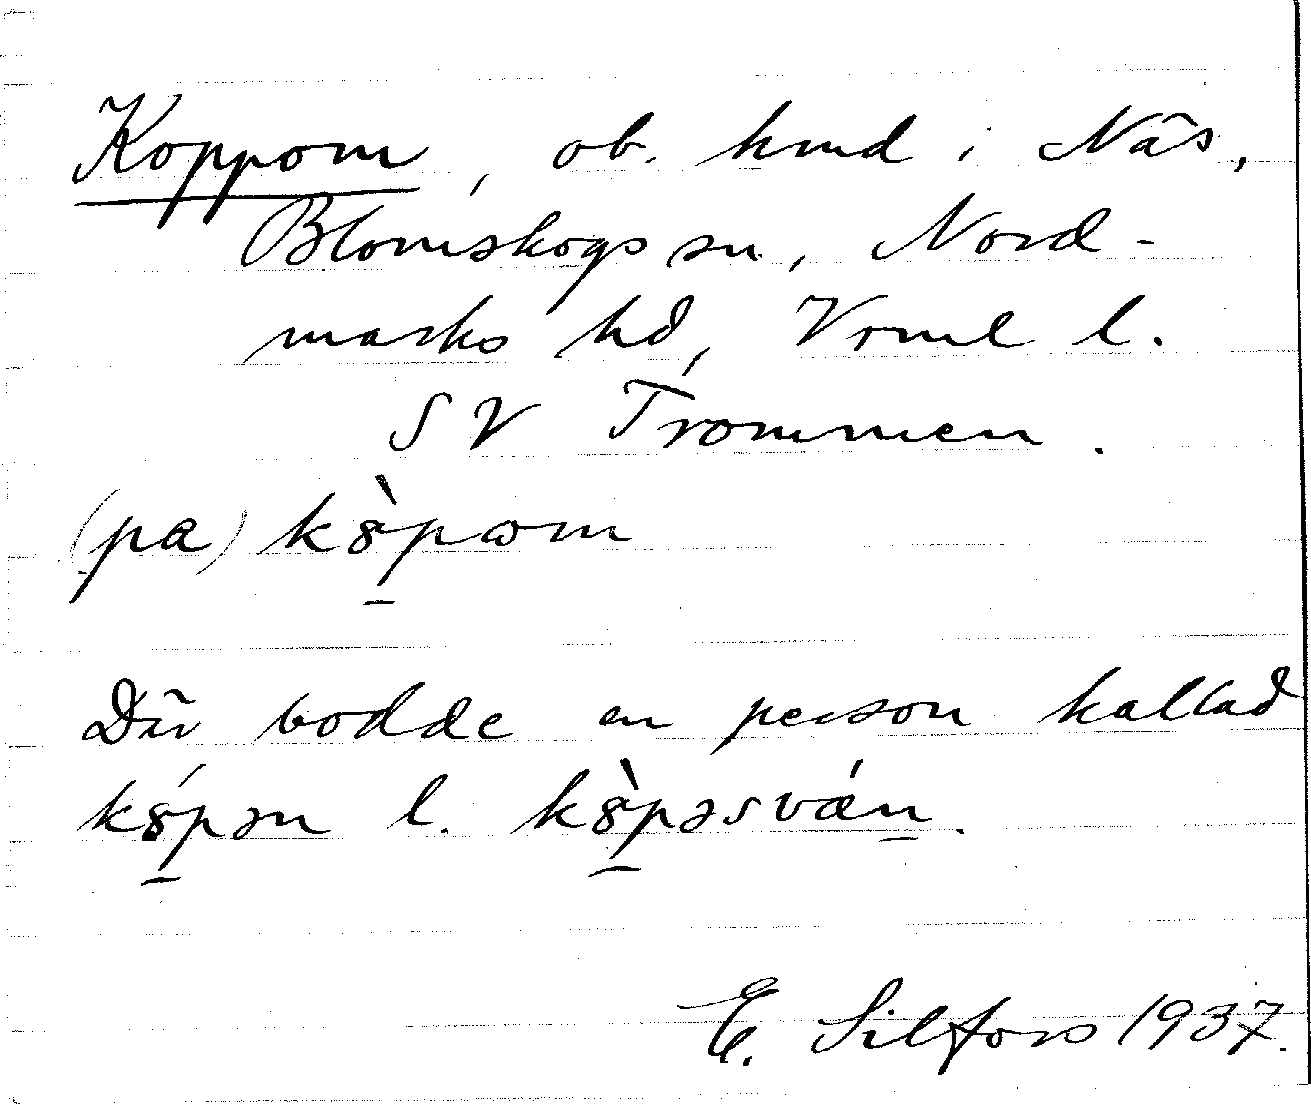 Koppom, ob. hmd i Näs,
Blomskogs sn, Nord-
marks hd, Vrml l.
SV Trommen.
(pa) k8̀pωm
Där bodde en person kallad
k8́pən l. k8̀pəsván.
E. Silfors 1937.